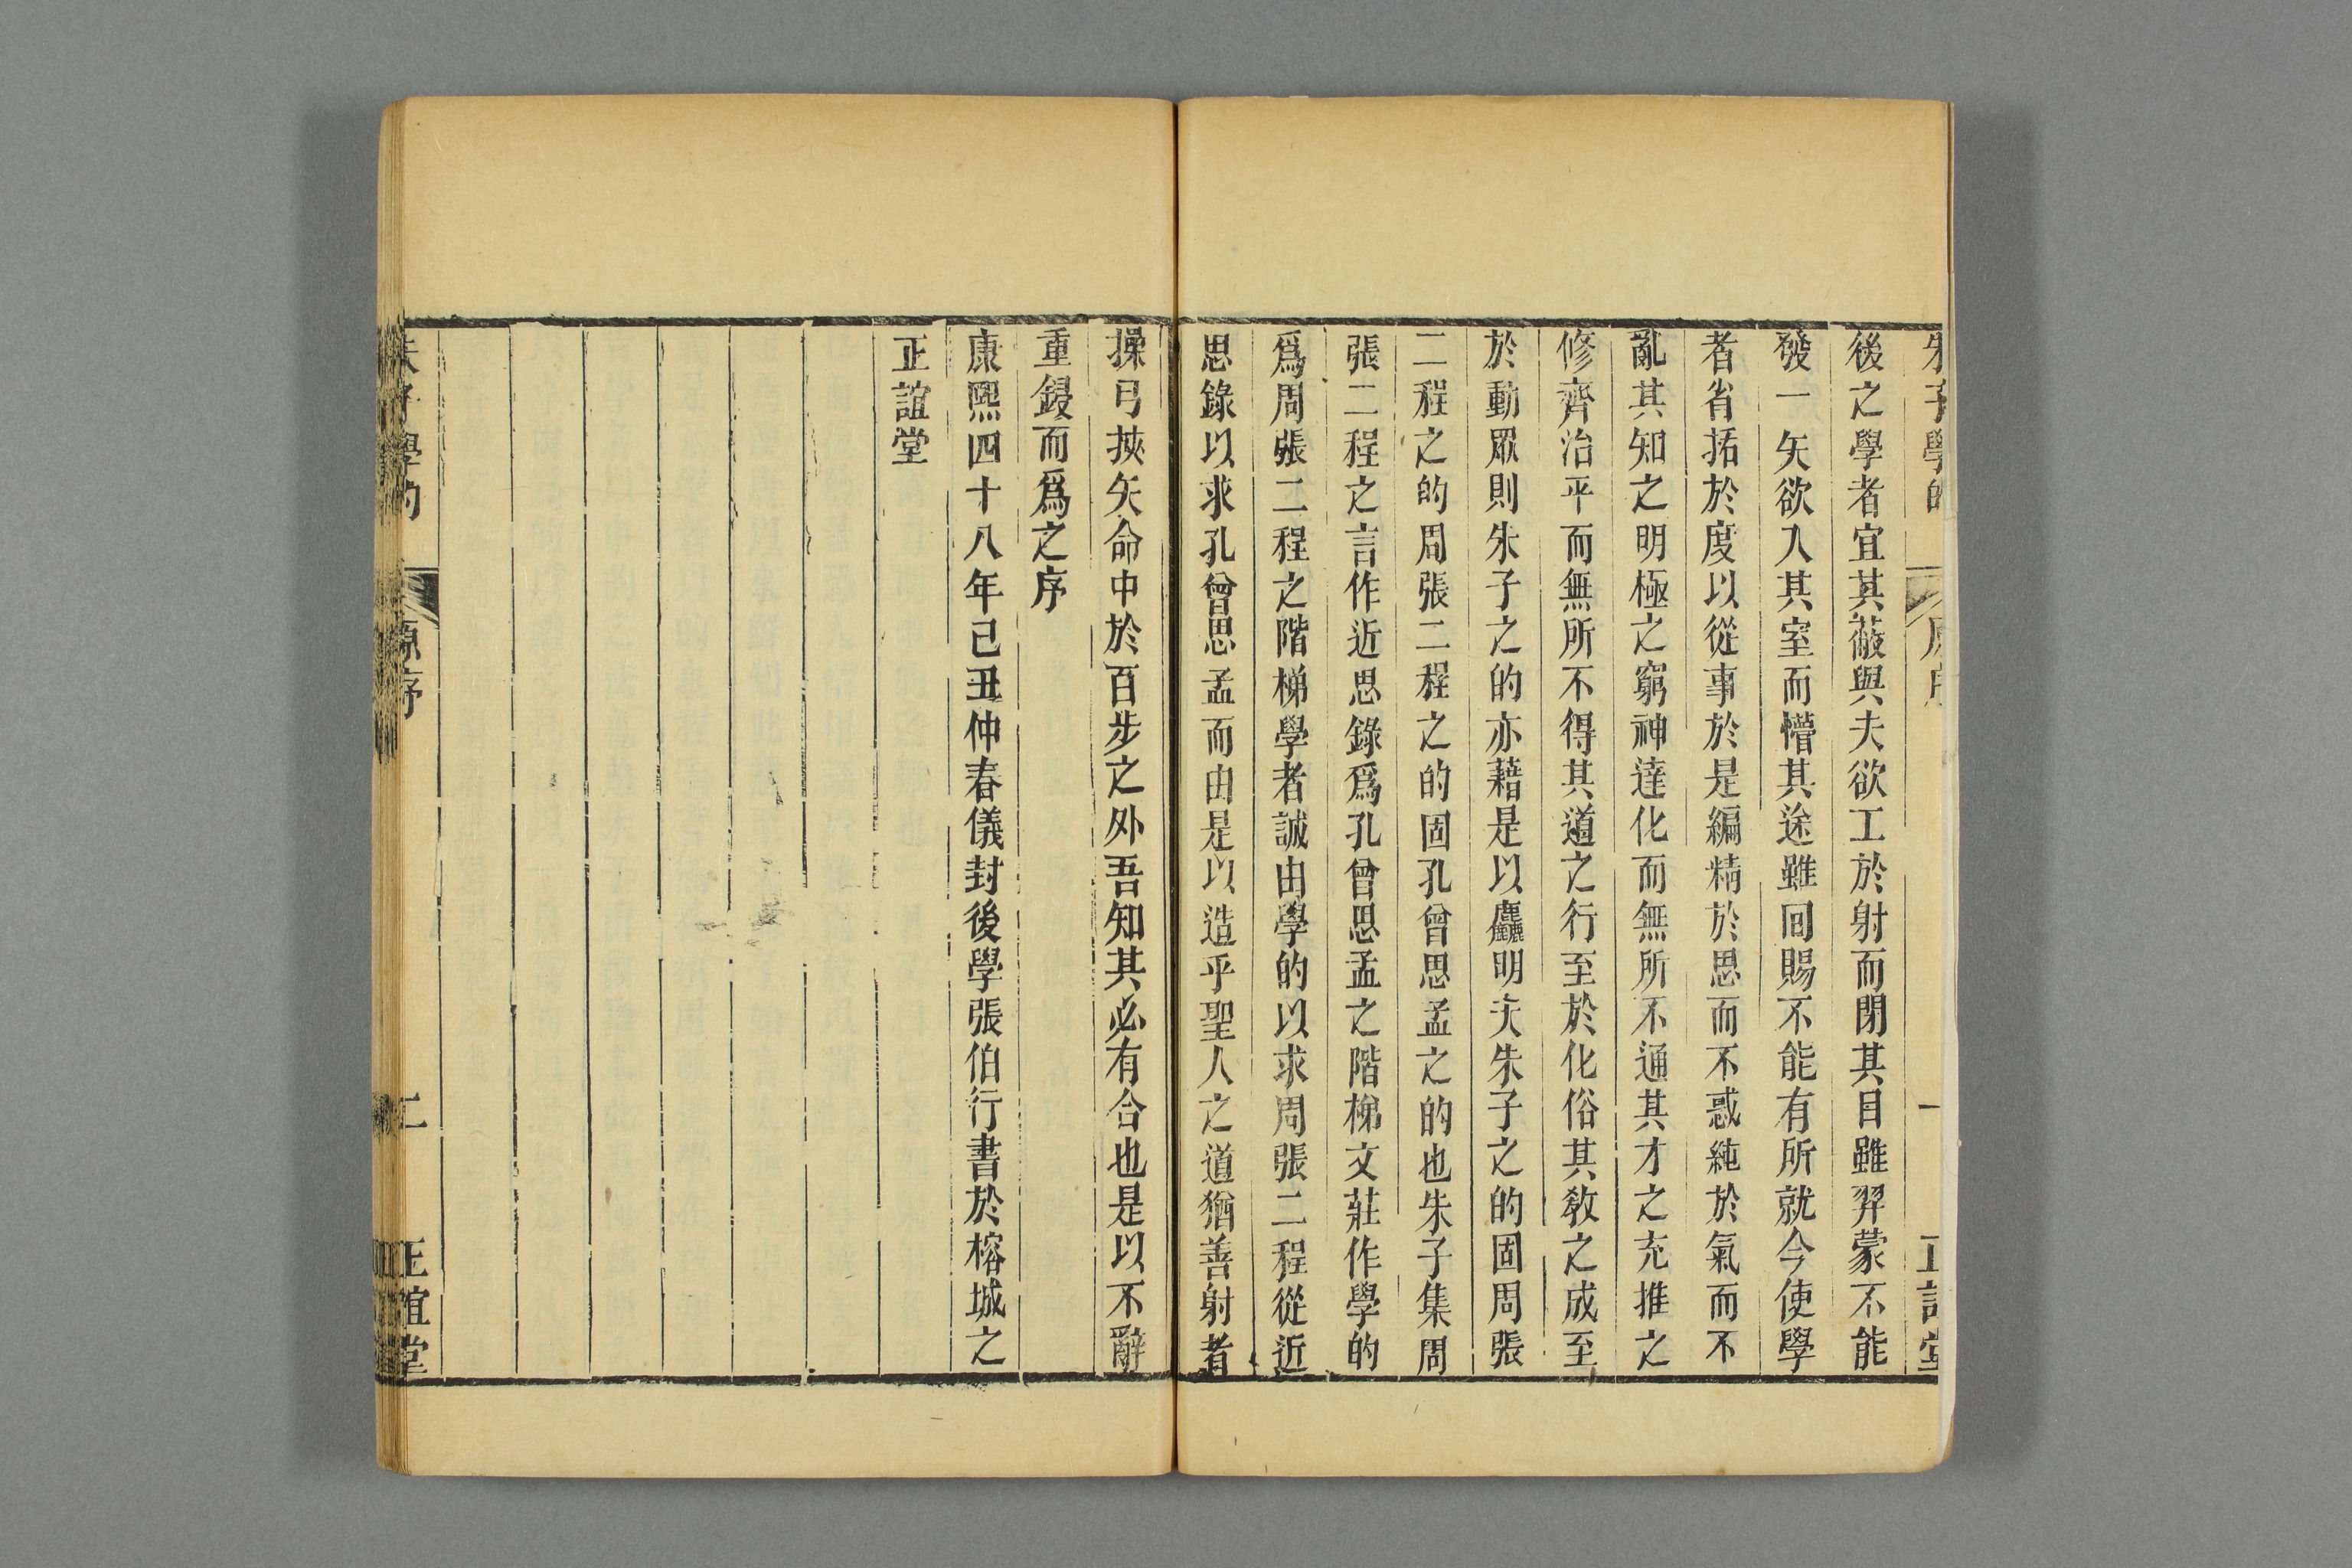 朱子學的 原序 一 正誼堂
後之學者宜其蔽與夫欲工於射而閉其目雖羿蒙不能
發一矢欲入其室而懵其途雖回賜不能有所就今使學
者省括於度以從事於是編精於思而不惑純於氣而不
亂其知之明極之窮神達化而無所不通其才之充推之
修齊治平而無所不得其道之行至於化俗其敎之成至
於動眾則朱子之的亦藉是以麤明夫朱子之的固周張
二程之的周張二程之的固孔曾思孟之的也朱子集周
張二程之言作近思錄爲孔曾思孟之階梯文莊作學的
爲周張二程之階梯學者誠由學的以求周張二程從近
思錄以求孔曾思孟而由是以造乎聖人之道猶善射者
操弓挾矢命中於百步之外吾知其必有合也是以不辭
重鋟而爲之序
康熙四十八年己丑仲春儀封後學張伯行書於榕城之
正誼堂
朱子學的 原序 二 正誼堂